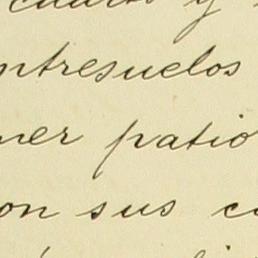 y
ntresuelos
ner patio
on sus c